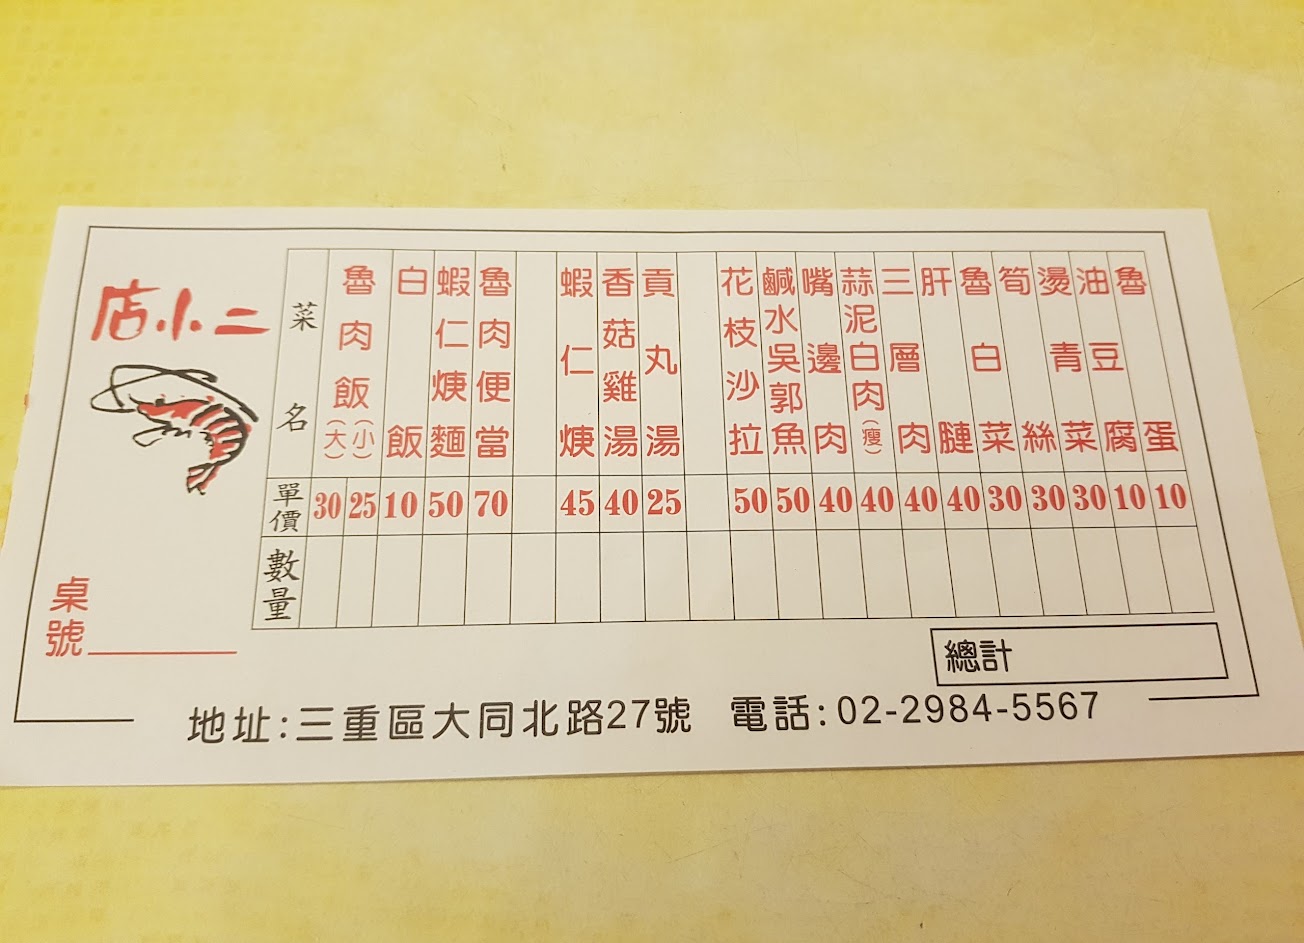 店小二
桌號
菜名
單價
數量
魯肉飯(大) 30
(小) 25
白飯 10
蝦仁焿麵 50
魯肉便當 70
蝦仁焿 45
香菇雞湯 40
貢丸湯 25
花枝沙拉 50
鹹水吳郭魚 50
嘴邊肉 40
蒜泥白肉(瘦) 40
三層肉 40
肝腱 40
魯白菜 30
筍絲 30
燙青菜 30
油豆腐 10
魯蛋 10
總計
地址:三重區大同北路27號 電話:02-2984-5567